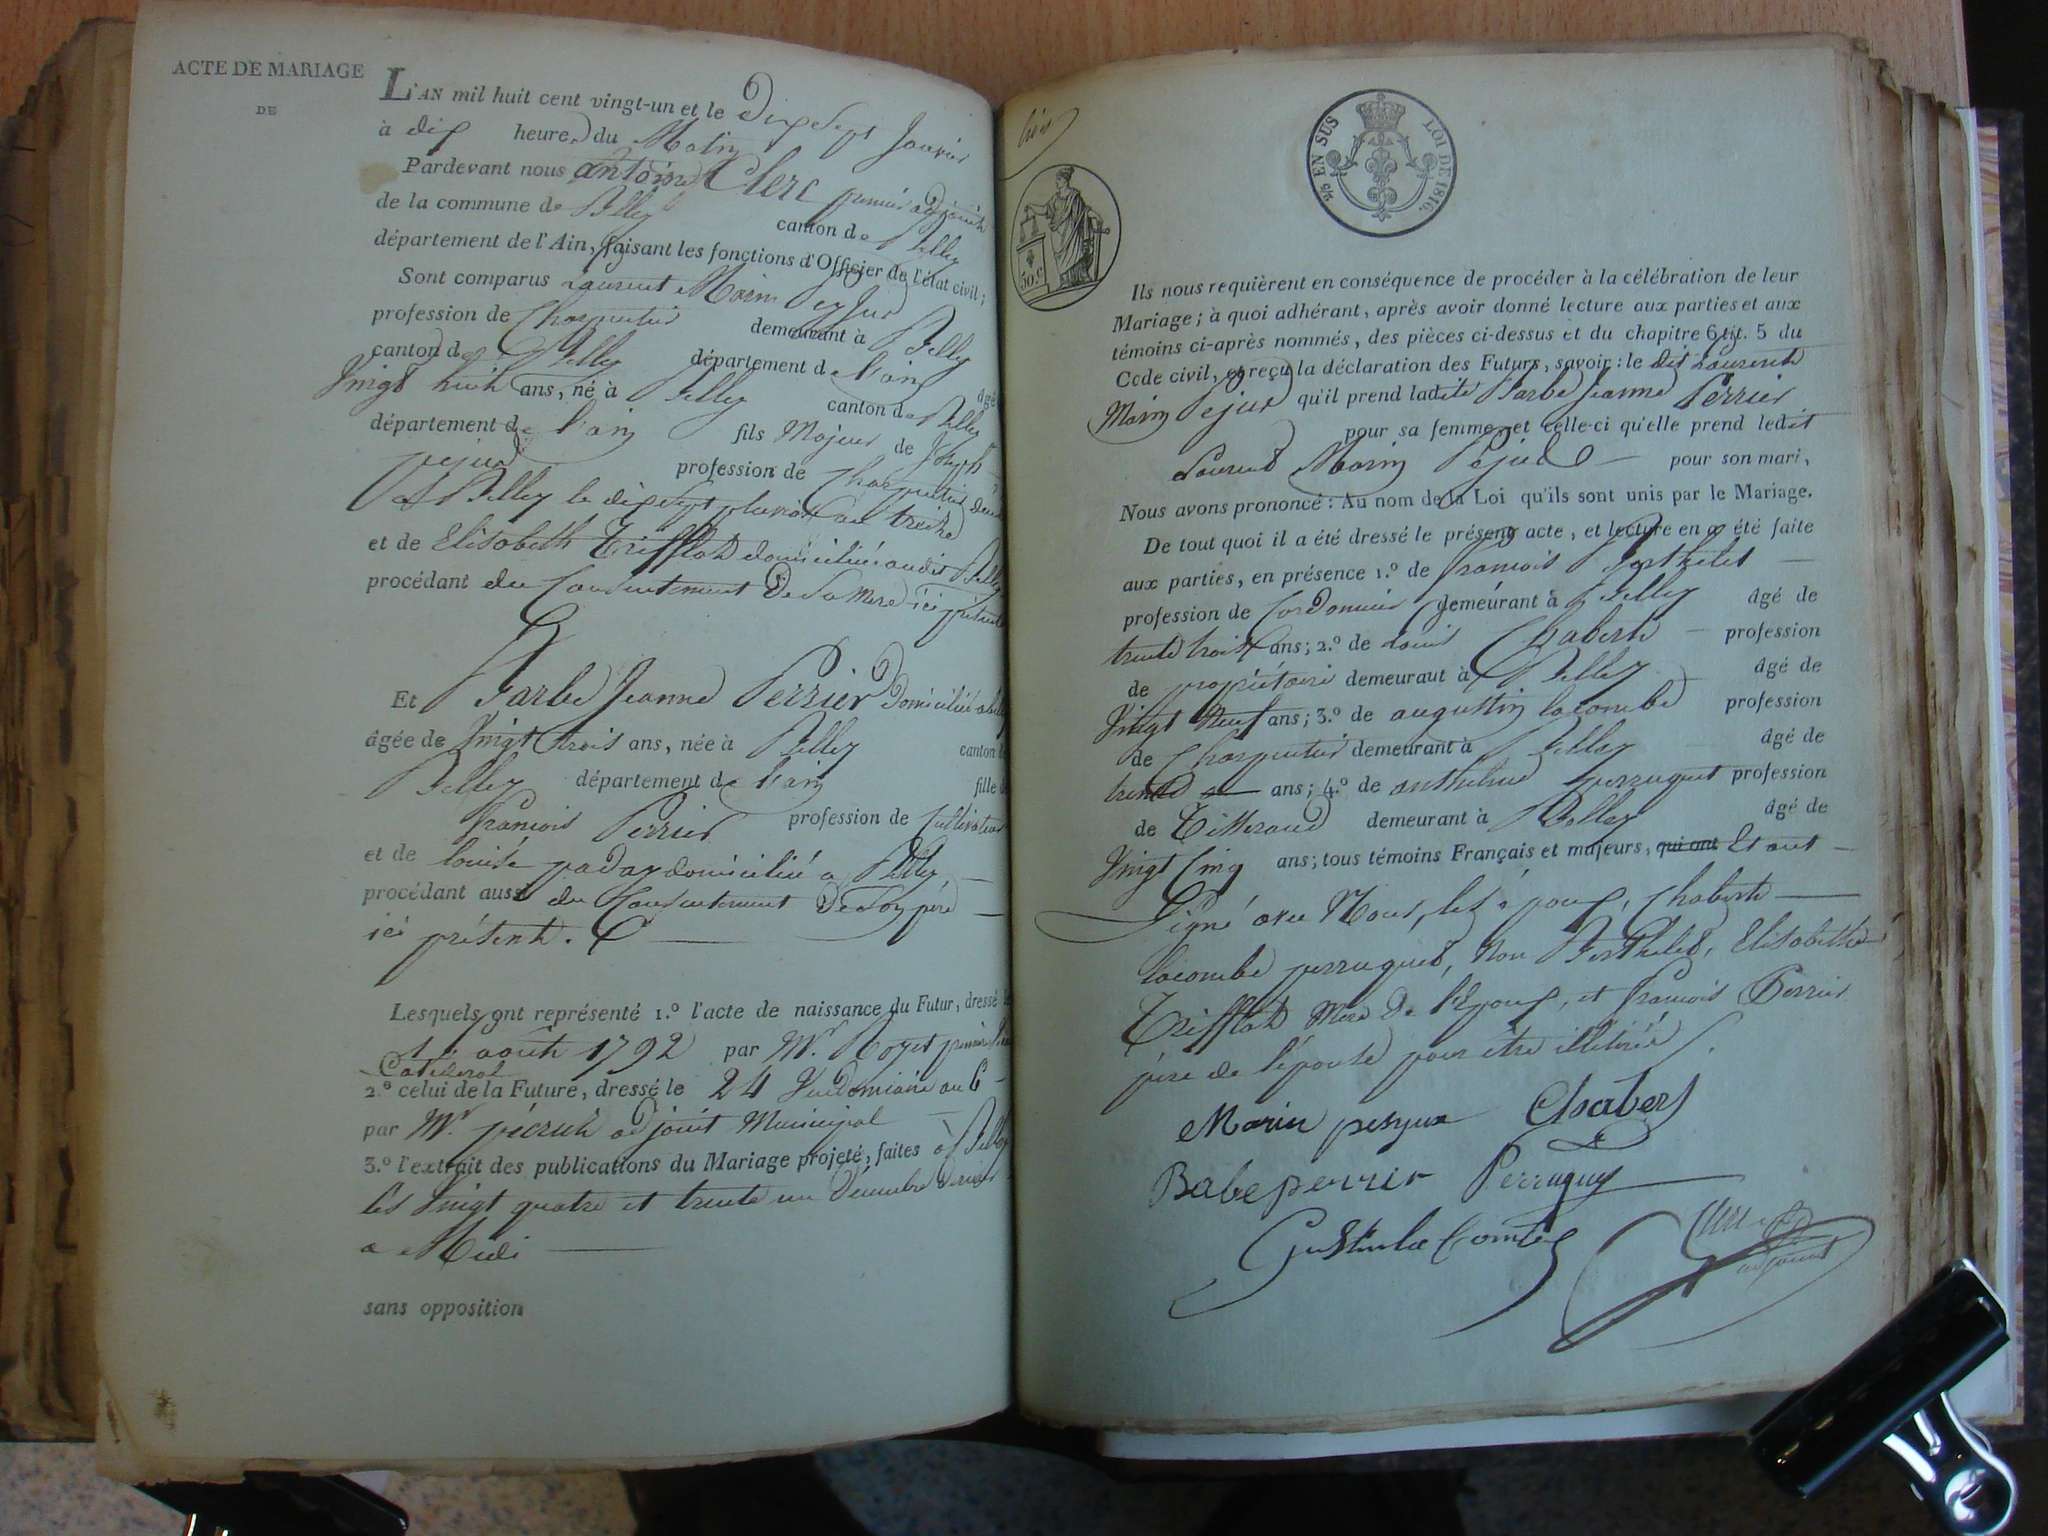 ACTE DE MARIAGE
DE
L'AN mil huit cent vingt-un et le Dix Sept Janvier
à dix heures du Matin
Pardevant nous antoine Clerc premier adjoint
de la commune de Belley canton de Belley
département de l'Ain, faisant les fonctions d'Officier de l'état civil;
Sont comparus Laurent Marin Pejus
profession de Charpentier demeurant à Belley
canton de Belley département de l'ain âgé
Vingt huit ans, né à Belley canton de Belley
département de l'ain fils Majeur de Joseph
pejus profession de Charpentier
à Belley le dix sept pluviose an treize
et de Elisabeth Trifflat domiciliée audit Belley
procédant du Consentement De Sa Mere ici présente
Et Barbe Jeanne Perrier Domiciliée
âgée de Vingt trois ans, née à Belley canton de
Belley département de l'ain fille de
francois Perrier profession de Cultivateur
et de louise paday domicilié a Belley
procédant aussi du Consentement De Son père
ici présent.
Lesquels ont représenté 1.º l'acte de naissance du Futur, dressé le
août 1792 par Mr.
Catédral
2.º celui de la Future, dressé le 24 Vendemiaire an 6
par Mr. adjoint Municipal
3.º l'extrait des publications du Mariage projeté, faites à Belley
les Vingt quatre et trente un Décembre Dernier
a Midi
sans opposition
2/10 EN SUS LOI DE 1816.
50.c
Ils nous requièrent en conséquence de procéder à la célébration de leur
Mariage; à quoi adhérant, après avoir donné lecture aux parties et aux
témoins ci-après nommés, des pièces ci-dessus et du chapitre 6 tit. 5 du
Code civil, et reçu la déclaration des Futurs, savoir: le dit Laurent
Marin Pejus qu'il prend ladite Barbe Jeanne Perrier
pour sa femme, et celle-ci qu'elle prend ledit
Laurent Marin Pejus pour son mari,
Nous avons prononcé: Au nom de la Loi qu'ils sont unis par le Mariage.
De tout quoi il a été dressé le présent acte, et lecture en a été faite
aux parties, en présence 1.º de francois Berthelet
profession de Cordonnier demeurant à Belley âgé de
trente trois ans; 2.º de Louis Chabert profession
de propriétaire demeurant à Belley âgé de
Vingt Neuf ans; 3.º de augustin lacombe profession
de Charpentier demeurant à Belley âgé de
trente ans; 4.º de anthelme perruquet profession
de Tisserand demeurant à Belley âgé de
Vingt Cinq ans; tous témoins Français et majeurs, qui ont Et ont
Signé avec Nous, les époux, Chabert
lacombe perruquet, Non Berthelet, Elisabeth
Trifflat Mere De l'Epoux, et francois Perrier
père de l'épouse pour être illitérés.
Marin pesjux Chabert
Babe perrier Perruquet
Gustin la Combe
adjoint